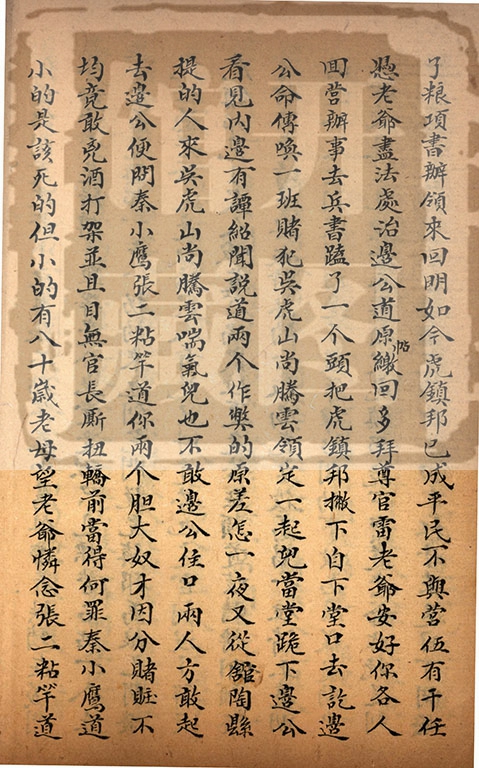 了粮項書辦領來回明如今虎鎮邦已成平民不與營伍有干任
憑老爺盡法處治邊公道原帖繳回多拜尊官雷老爺安好你各人
回營辦事去兵書磕了一个頭把虎鎮邦撇下自下堂口去訖邊
公命傳喚一班賭犯吳虎山尚騰雲領定一起兒當堂跪下邊公
看見內邊有譚紹聞說道兩个作獘的原差怎一夜又從舘陶縣
提的人來吳虎山尚騰雲喘氣兒也不敢邊公住口兩人方敢起
去邊公便問秦小鷹張二粘竿道你兩个胆大奴才因分賭賍不
均竟敢兇酒打架並且目無官長厮扭轎前當得何罪秦小鷹道
小的是該死的但小的有八十歲老母望老爺憐念張二粘竿道